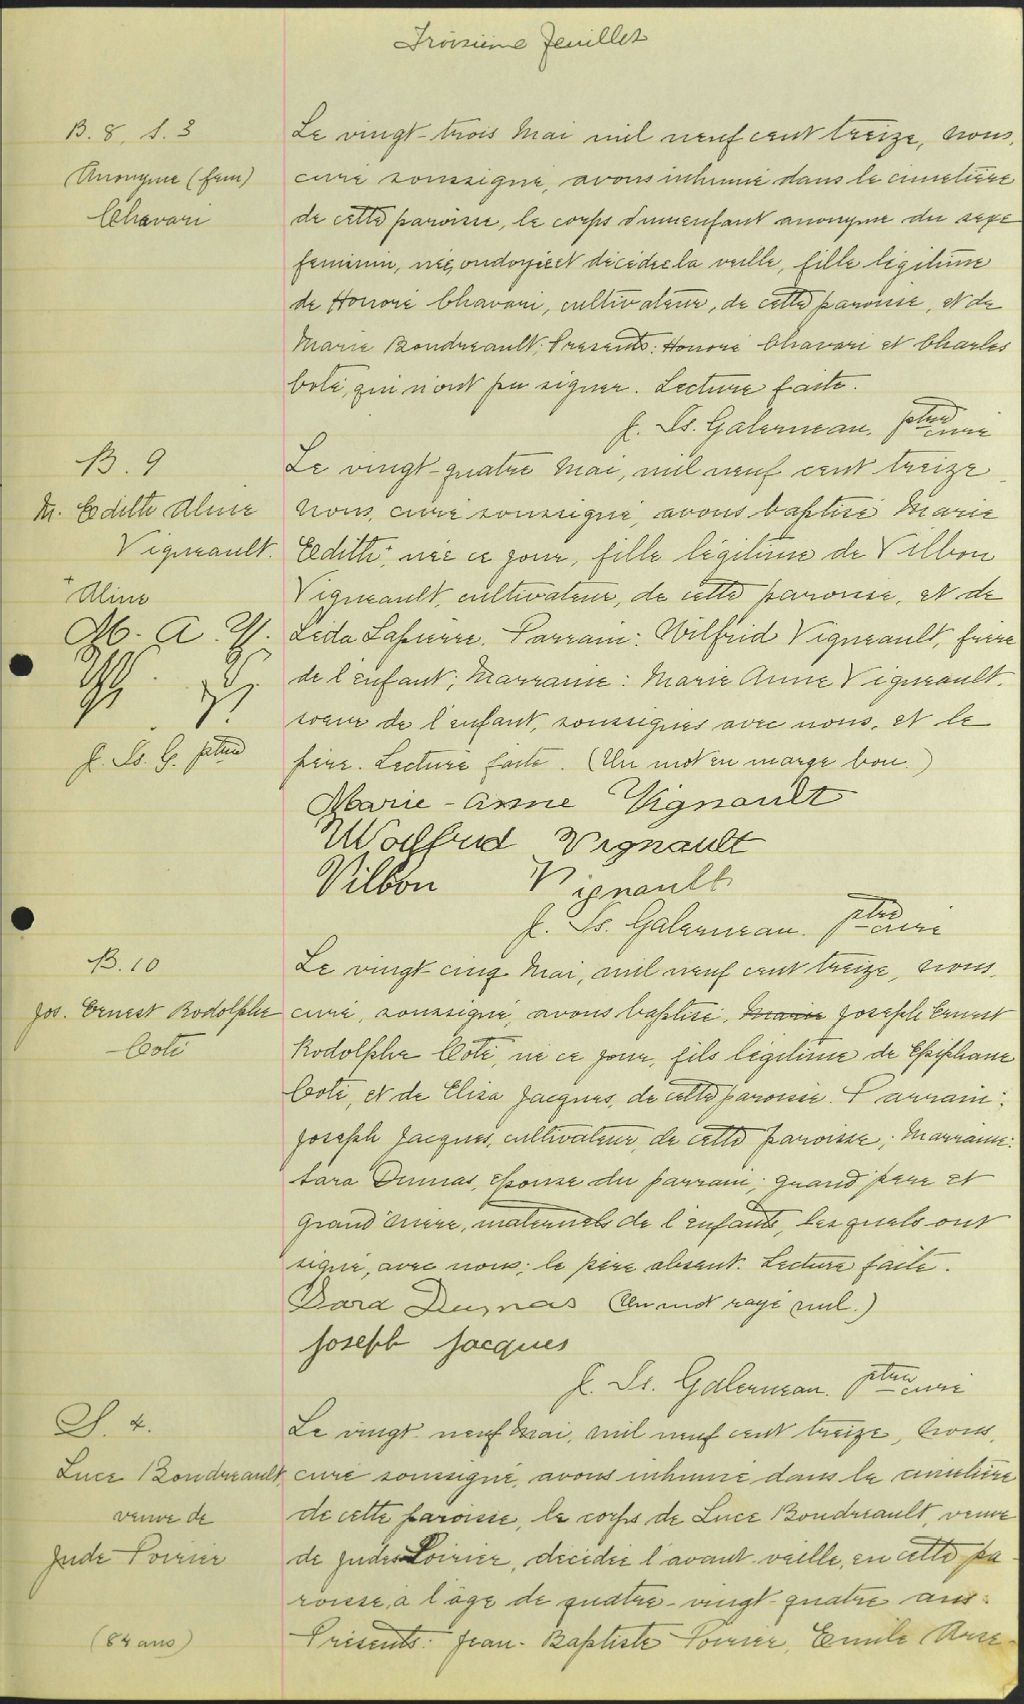 Troisième feuillet
B. 8. S. 3
Anonyme (fem)
Chavari
Le vingt-trois Mai mil neuf cent treize, nous,
curé soussigné, avons inhumé dans le cimetière
de cette paroisse, le corps d'un enfant anonyme du sexe
feminin, née, ondoyée et décédée la veille, fille légitime
de Honoré Chavari, cultivateur, de cette paroisse, et de
Marie Boudreault; Presents: Honoré Chavari et Charles
Coté, qui n'ont pu signer. Lecture faite.
J. Is. Galerneau, ptre curé
B. 9
M. Edith Aline
Vigneault.
+ Aline
M. A. V.
W. V.
V. V.
J. Is. G. ptre
Le vingt-quatre Mai, mil neuf cent treize
nous, curé soussigné, avons baptisé Marie
Edith +, née ce jour, fille légitime de Vilbon
Vigneault, cultivateur, de cette paroisse, et de
Léda Lapierre. Parrain: Wilfrid Vigneault, frère
de l'enfant; Marraine: Marie Anne Vigneault,
soeur de l'enfant, soussignés avec nous, et le
père. Lecture faite. (Un mot en marge bon.)
Marie-Anne Vignault
Wilfrid Vignault
Vilbon Vignault
J. Is. Galerneau. ptre curé
B. 10
Jos. Ernest Rodolphe
Coté
Le vingt-cinq Mai, mil neuf cent treize, nous,
curé, soussigné, avons baptisé, Marie Joseph Ernest
Rodolphe Coté, né ce jour, fils légitime de Epiphane
Coté, et de Eliza Jacques, de cette paroisse. Parrain:
Joseph Jacques, cultivateur, de cette paroisse; Marraine:
Sara Dumas, épouse du parrain; grand'père et
grand'mère, maternels de l'enfant, lesquels ont
signé, avec nous; le père absent. Lecture faite.
Sara Dumas (Un mot rayé nul.)
Joseph Jacques
J. Is. Galerneau. ptre curé
S. 4.
Luce Boudreault,
veuve de
Jude Poirier
(84 ans)
Le vingt-neuf Mai, mil neuf cent treize, nous,
curé soussigné, avons inhumé dans le cimetière
de cette paroisse, le corps de Luce Boudreault, veuve
de Jude Poirier, décédée l'avant veille, en cette pa-
roisse, à l'âge de quatre-vingt-quatre ans.
Présents: Jean-Baptiste Poirier, Emile Arse-